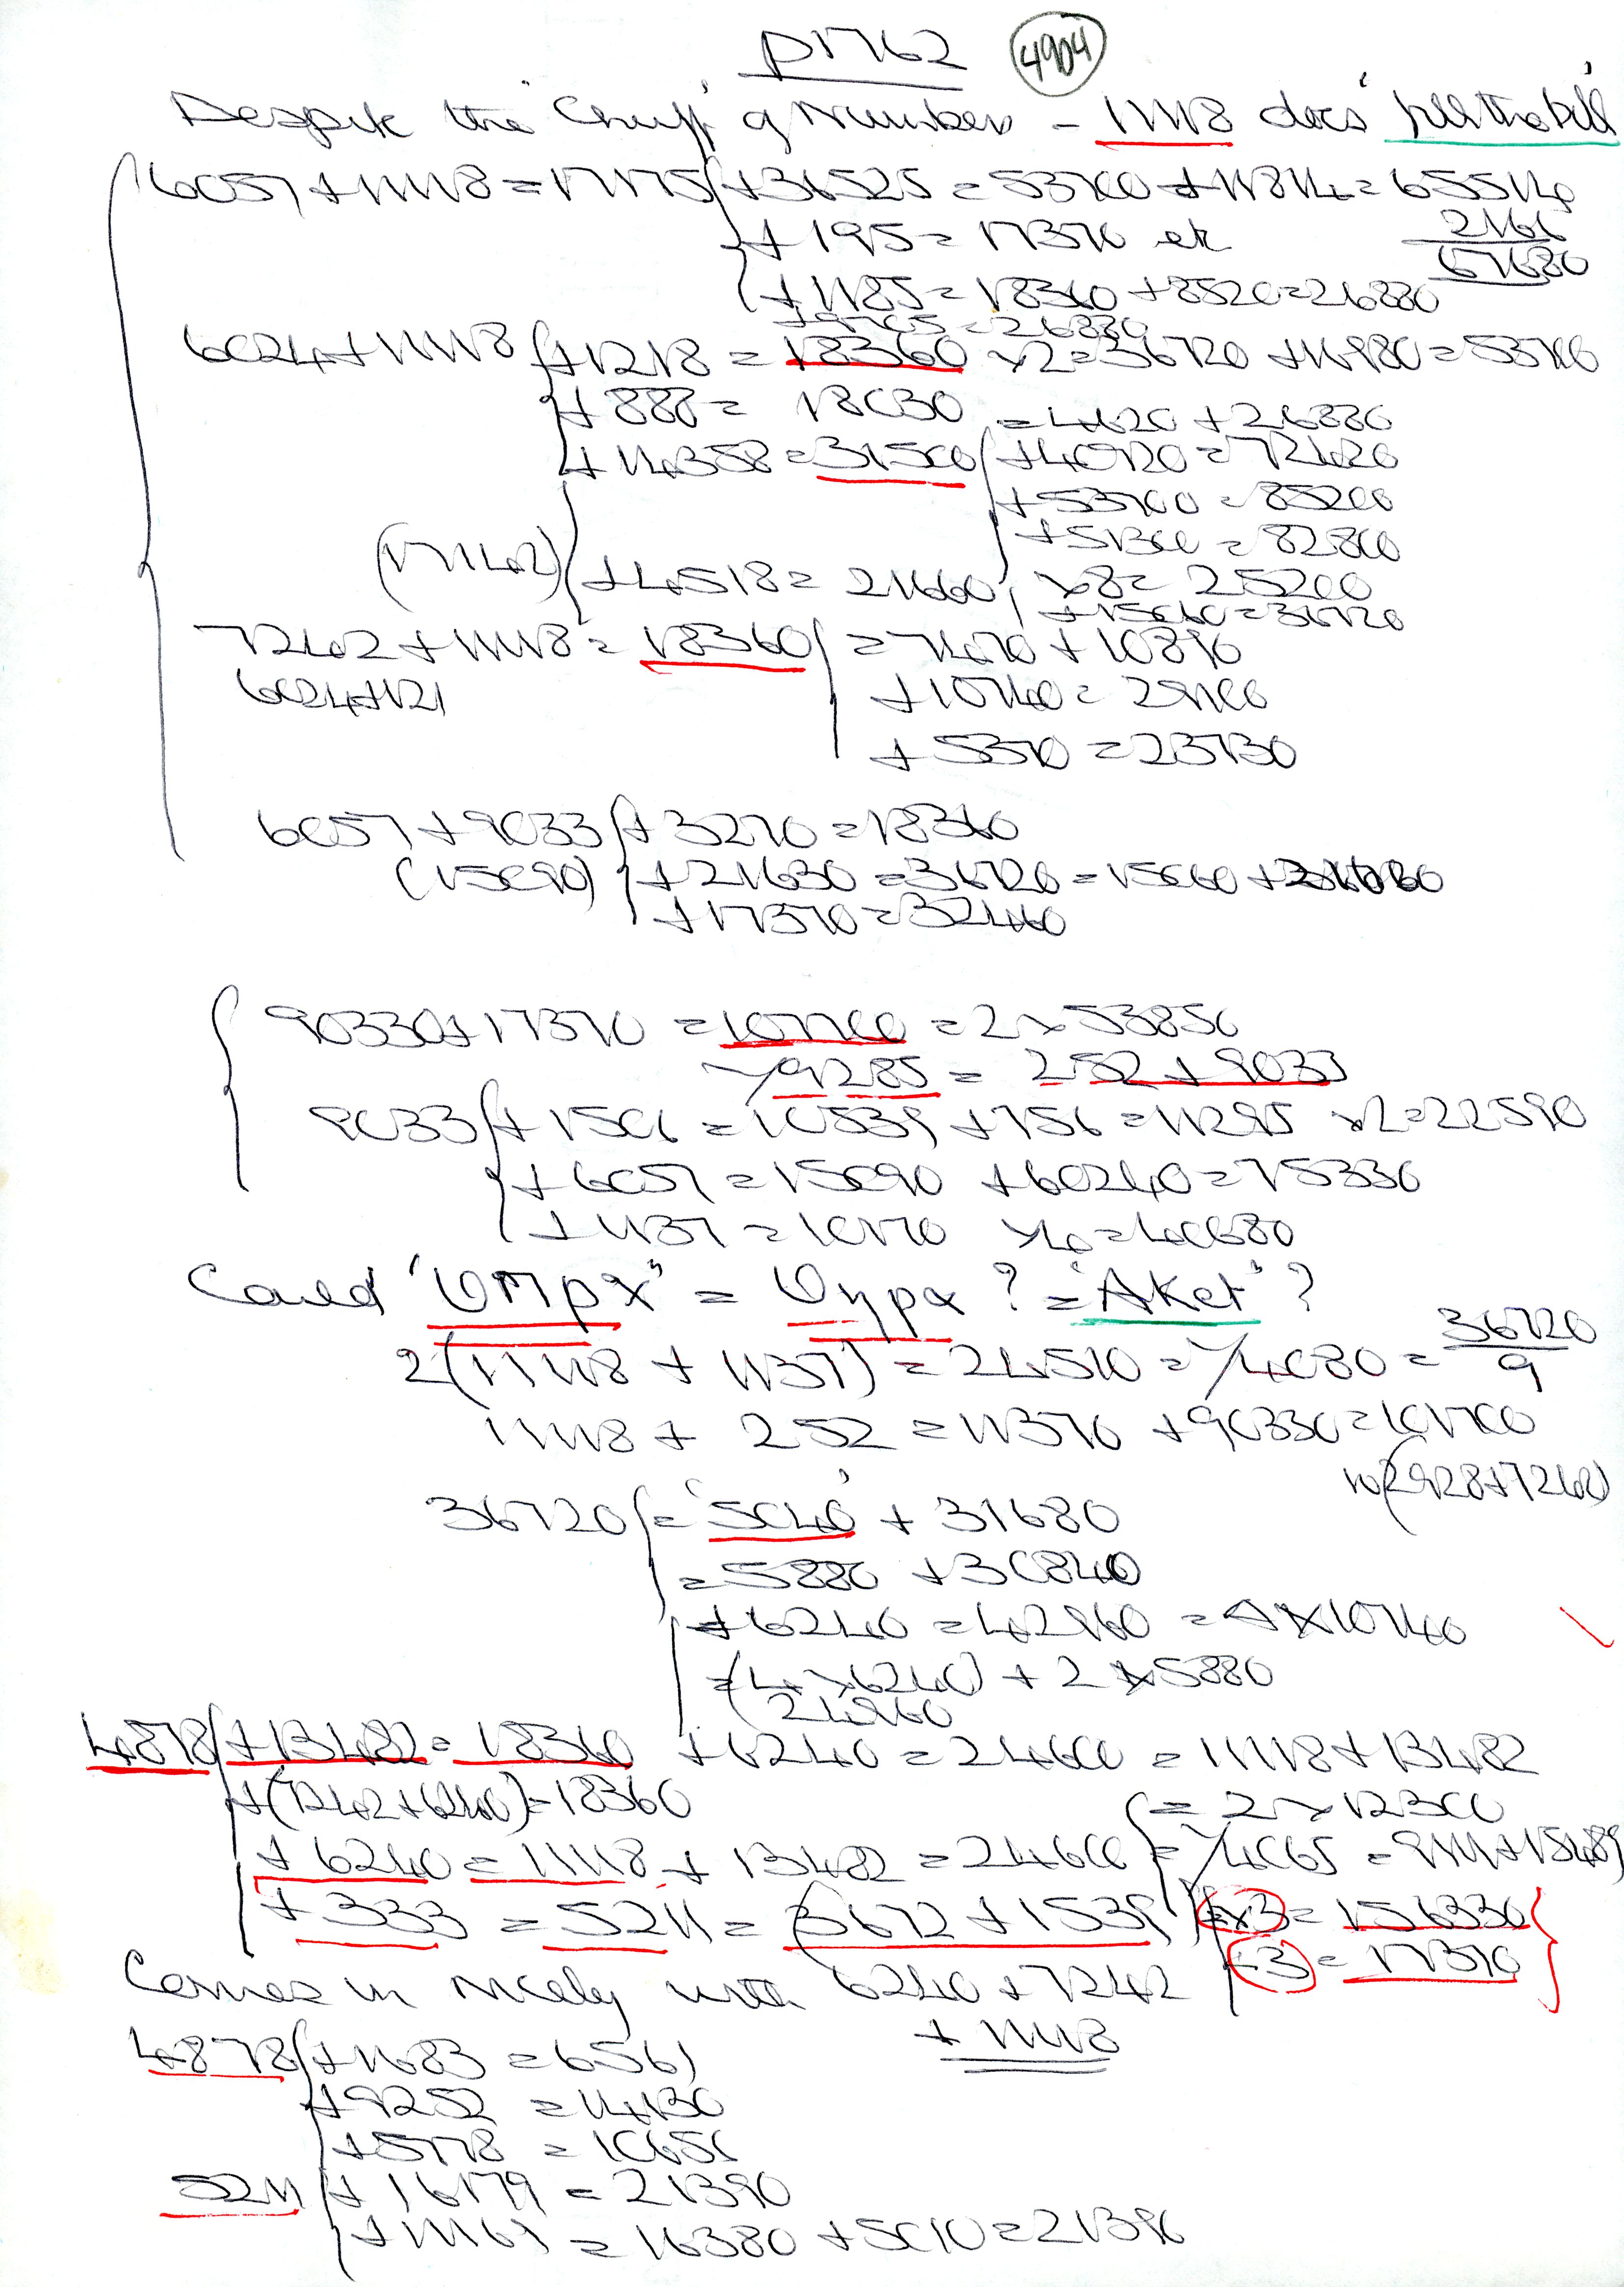 p1762 4904
Despite the 'Chuff' of Numbers - 11118 does 'fill the bill'
6057 + 11118 = 17175 + 36525 = 53700 + 11814 = 65514
+ 195 = 17370 etc 2166
67680
+ 1185 = 18360 + 8520 = 26880
+ 9705 = 26880
6024 + 11118 + 1218 = 18360 x2 = 36720 + 16980 = 53700
+ 888 = 18030 = 4620 + 26880
+ 14358 = 31500 + 40920 = 72420
+ 53700 = 85200
+ 51300 = 82800
(17142) + 4518 = 21660, x8 = 25200
+ 15060 = 36720
7242 + 11118 = 18360 = 7470 + 10890
6024 + 121 + 10740 = 29100
+ 5370 = 23730
6057 + 9033 + 3270 = 18360
(15090) + 21630 = 36720 = 15060 +
+ 17370 = 32460
90330 + 17370 = 107700 = 2 x 53850
/9285 = 252 + 9033
9033 + 1506 = 10539 + 756 = 11295 x2 = 22590
+ 6057 = 15090 + 60240 = 75330
+ 1137 = 10170 x4 = 40680
Could 'ΘΠρχ' = Θηρα ? = 'Aket' ?
2(11118 + 1137) = 24510 = /4080 = 36720/9
11118 + 252 = 11370 + 90330 = 101700
10(2928 + 7242)
36720 = '5040' + 31680
= 5880 + 30840
+ 6240 = 42960 = 4 x 10740
= (4 x 6240) + 2 x 5880
24960
4878 + 13482 = 18360 + 6240 = 24600 = 11118 + 13482
+ (7242 + 6240) = 18360 = 2 x 12300
+ 6240 = 11118 + 13482 = 24600 = /4065 = 9111 + 15489
+ 333 = 5211 = 3672 + 1539 x3 = 156330
÷3 = 17370
Comes in nicely with 6240 + 7242
+ 11118
4878 + 1683 = 6561
+ 9252 = 14130
+ 5778 = 10656
5211 + 16179 = 21390
+ 11169 = 16380 + 5010 = 21390